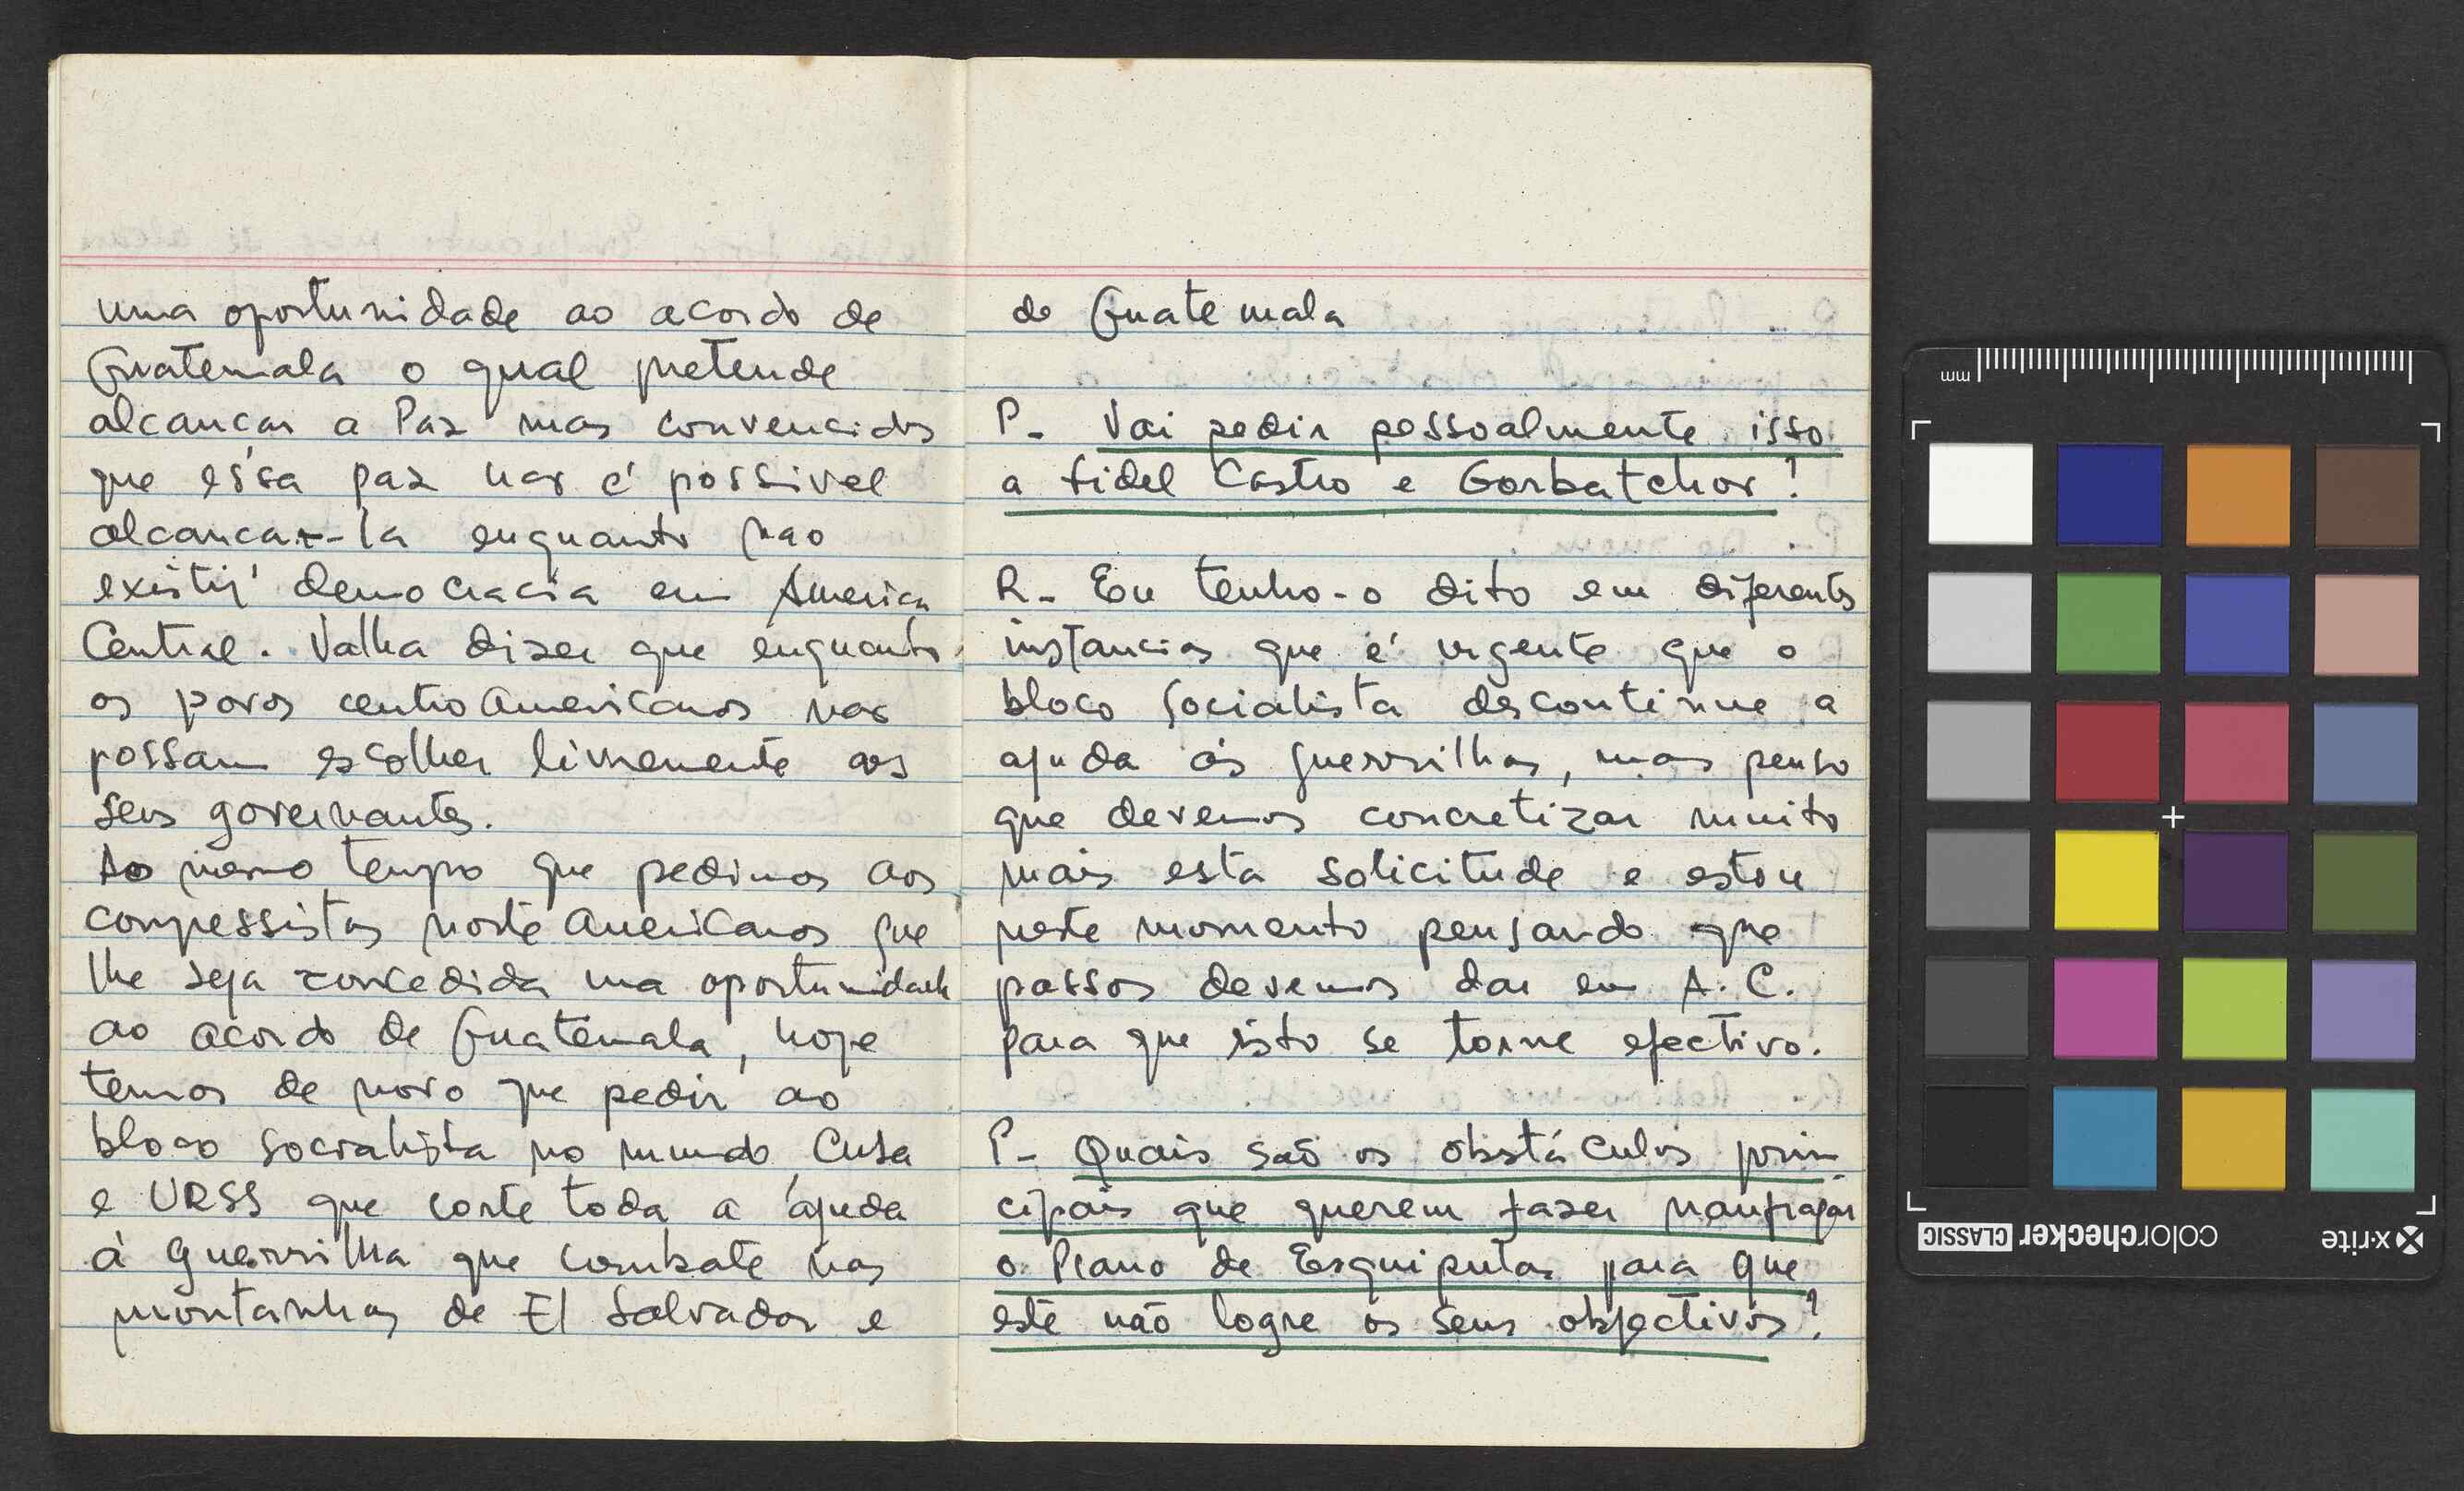 uma oportunidade ao acordo de
Guatemala o qual pretende
alcançar a Paz mas convencidos
que essa paz nao é possivel
alcancar-la enquanto nao
existir democracia em America
Central. Valha dizer que enquanto
os povos centroamericanos nao
possam escolher livremente aos
seus governantes.
Ao mesmo tempo que pedimos aos
congressistas norte americanos que
lhe seja concedida uma oportunidade
ao acordo de Guatemala, hoje
temos de novo que pedir ao
bloco socialista no mundo, Cuba
e URSS que corte toda a ajuda
á guerrilha que combate nas
montanhas de El Salvador e
de Guatemala
P- Vai pedir pessoalmente isso
a Fidel Castro e Gorbatchov?
R- Eu tenho-o dito em diferentes
instancias que é urgente que o
bloco socialista descontinue a
ajuda ás guerrilhas, mas penso
que devemos concretizar muito
mais esta solicitude e estou
neste momento pensando que
passos devemos dar em A.C.
para que isto se torne efectivo.
P- Quais são os obstáculos prin-
cipais que querem fazer naufragar
o Plano de Esquipulas para que
este não logre os seus objectivos?
mm
x-rite
colorchecker CLASSIC